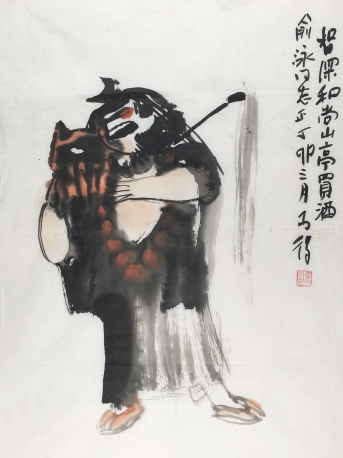 智深和尚山亭買酒
俞泳同志正丁卯三月马得